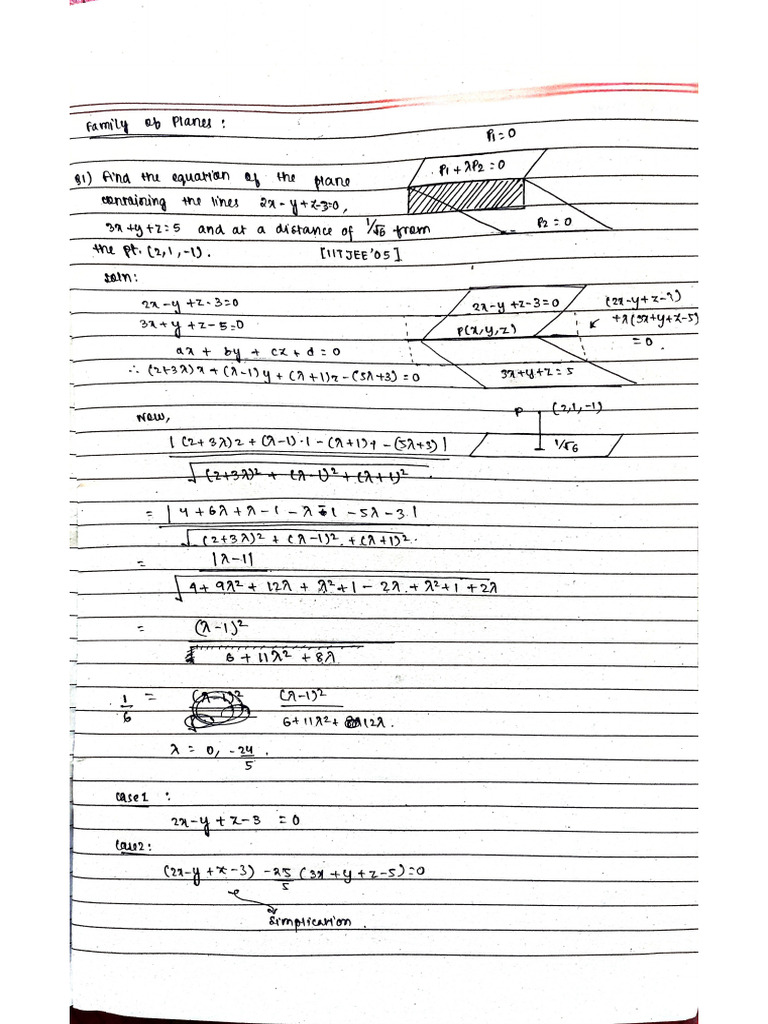 Family of Planes :
P1 = 0
P1 + λP2 = 0
P2 = 0
Q1) Find the equation of the plane
containing the lines 2x - y + z - 3 = 0,
3x + y + z = 5 and at a distance of 1/√6 from
the pt. (2, 1, -1). [IITJEE'05]
Soln:
2x - y + z - 3 = 0
3x + y + z - 5 = 0
ax + by + cz + d = 0
∴ (2+3λ)x + (λ-1)y + (λ+1)z - (5λ+3) = 0
2x - y + z - 3 = 0
P(x,y,z)
3x + y + z = 5
(2x-y+z-3)
+λ(3x+y+z-5)
= 0.
Now,
|(2+3λ)2 + (λ-1)·1 - (λ+1)+ - (5λ+3)|
√(2+3λ)² + (λ-1)² + (λ+1)²
P (2,1,-1)
1/√6
= |4 + 6λ + λ - 1 - λ - 1 - 5λ - 3|
√(2+3λ)² + (λ-1)² + (λ+1)²
= |λ-1|
√4 + 9λ² + 12λ + λ² + 1 - 2λ + λ² + 1 + 2λ
= (λ-1)²
6 + 11λ² + 8λ
1/6 = (λ-1)²
6 + 11λ² + 12λ.
λ = 0, -24/5.
Case1 :
2x - y + z - 3 = 0
Case2:
(2x-y + z - 3) -25/5 (3x + y + z - 5) = 0
Simplication.